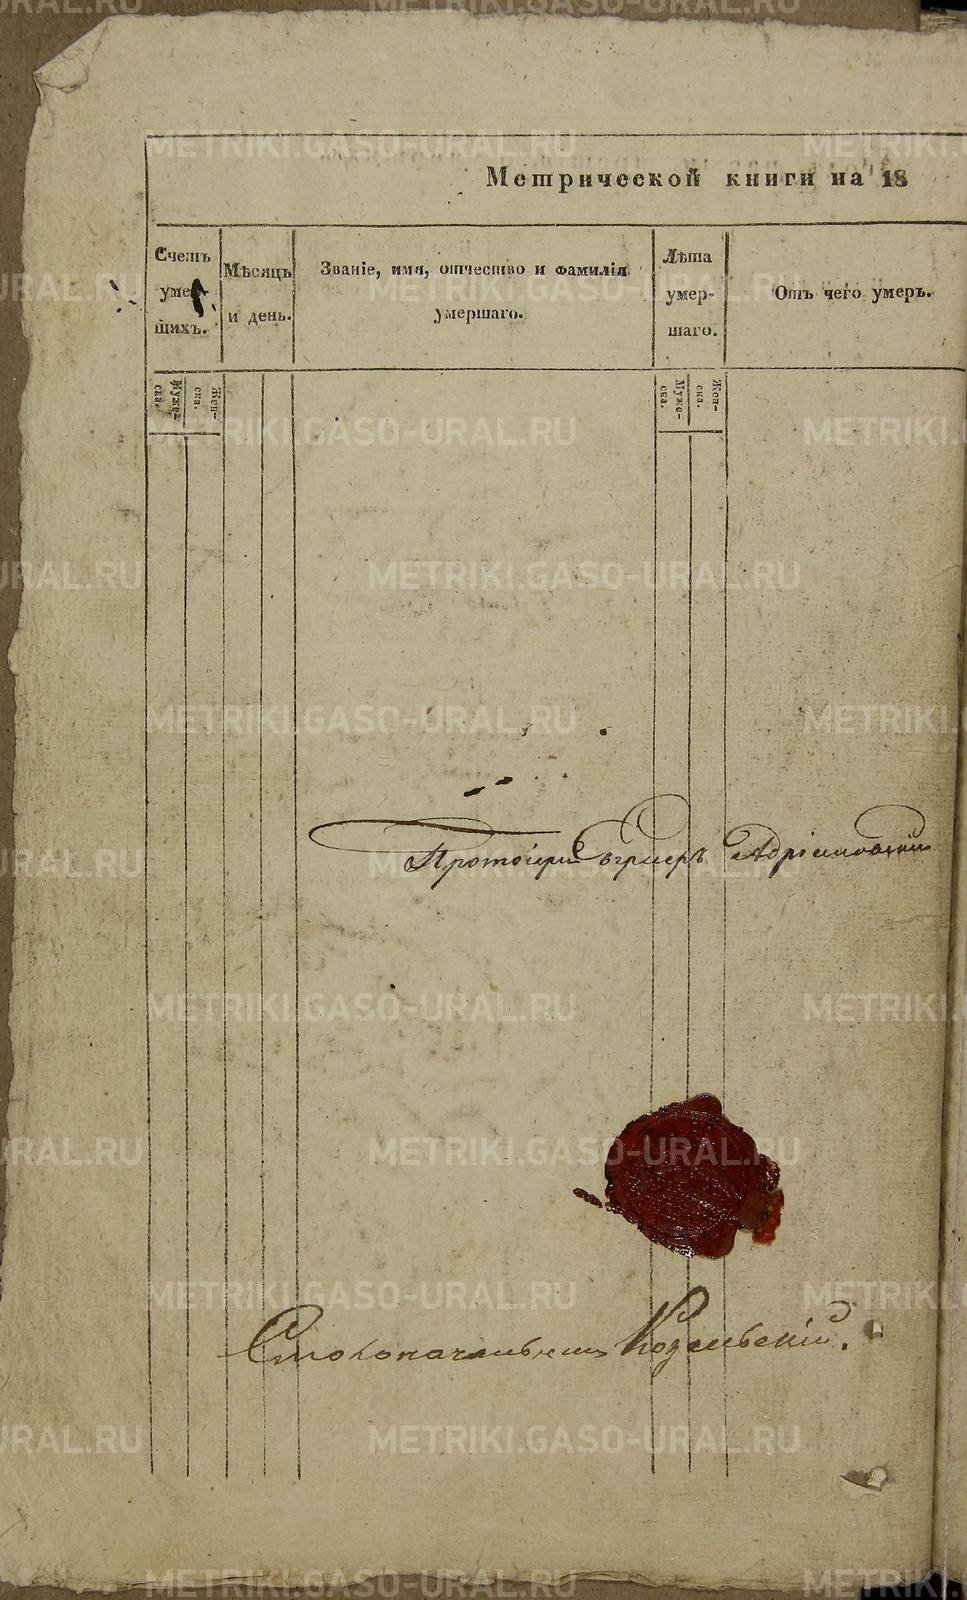 Метрической книги на 18
Счетъ умершихъ.
Мѣсяцъ и день.
Званіе, имя, отчество и фамилія умершаго.
Лѣта умершаго.
Отъ чего умеръ.
Муже-ска.
Жен-ска.
Муже-ска.
Жен-ска.
Протоіерей Адріановскій
Столоначальникъ Козельскій.
METRIKI.GASO-URAL.RU